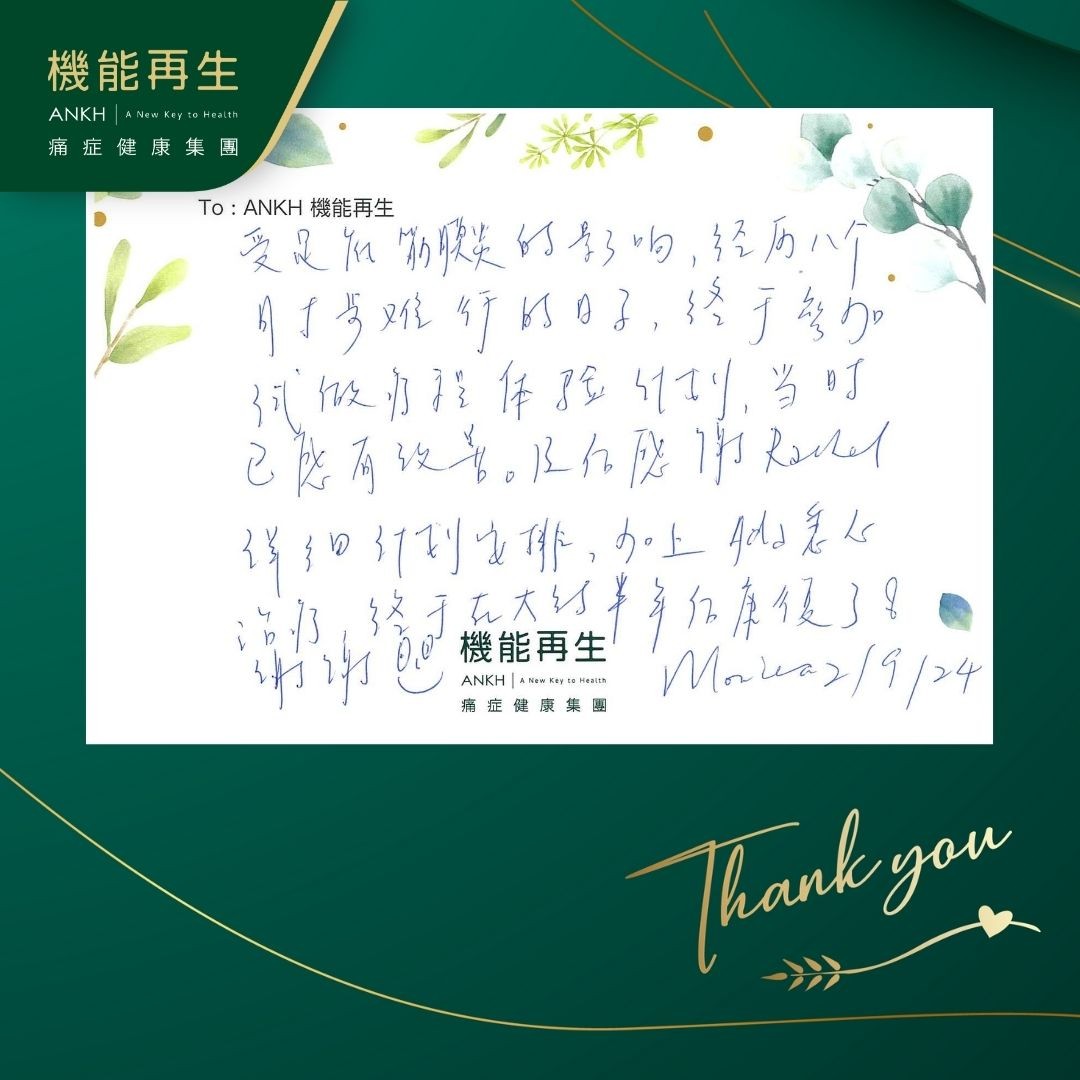 機能再生
ANKH | A New Key to Health
痛症健康集團
To : ANKH 機能再生
受足底筋膜炎的影响，经历八个
月寸步难行的日子，终于参加
试做疗程体验计划，当时
已感有改善。及后感谢Rachel
详细计划安排，加上Ada悉心
治疗，终于在大约半年后康復了。
谢谢
機能再生
ANKH | A New Key to Health
痛症健康集團
Monica 2/9/24
Thank you